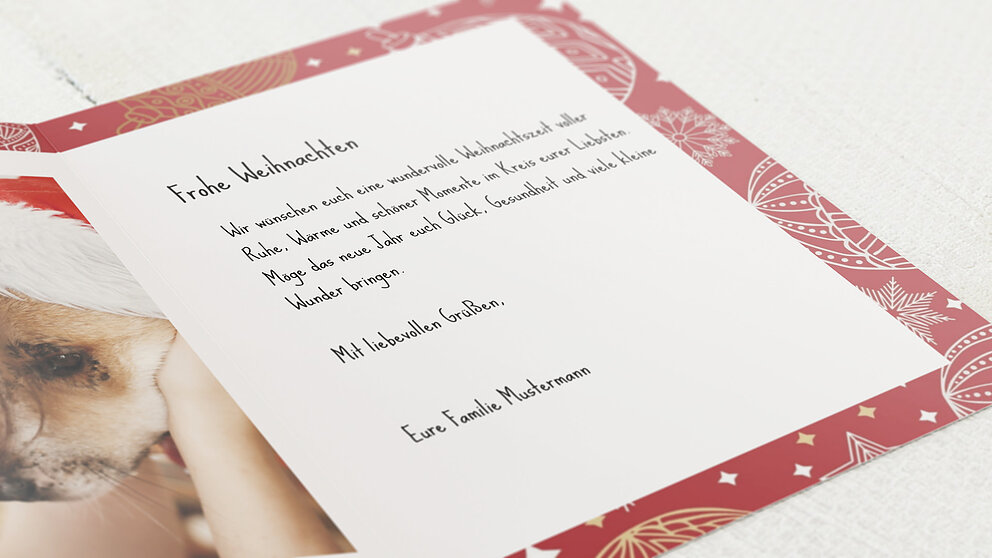 Frohe Weihnachten
Wir wünschen euch eine wundervolle Weihnachtszeit voller
Ruhe, Wärme und schöner Momente im Kreis eurer Liebsten.
Möge das neue Jahr euch Glück, Gesundheit und viele kleine
Wunder bringen.
Mit liebevollen Grüßen,
Eure Familie Mustermann